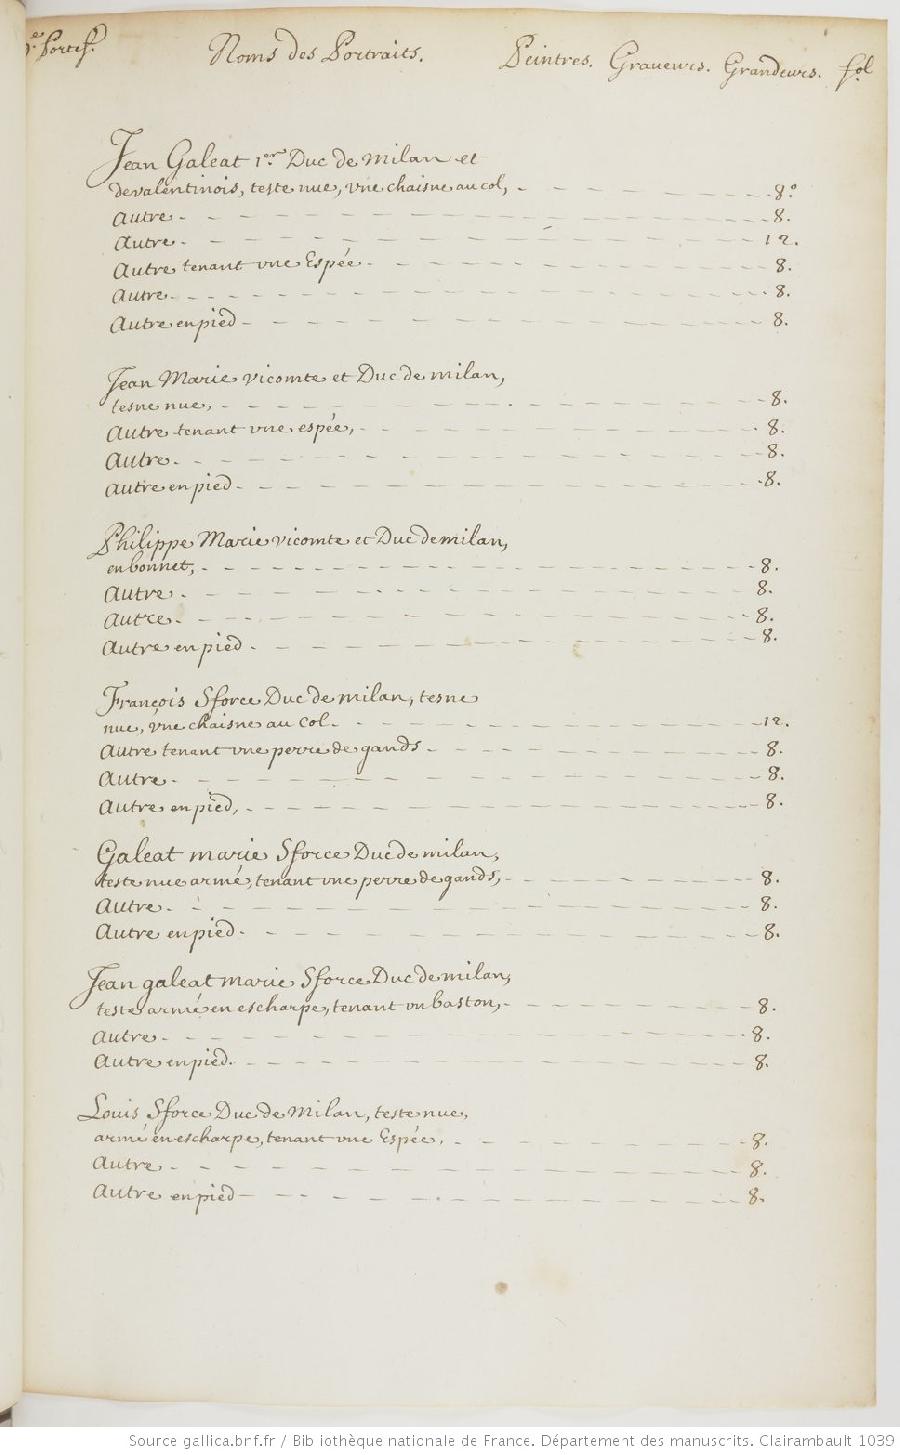 e. Portef. Noms des Portraits. Peintres. Graveurs. Grandeurs. fol
Jean Galeat 1er Duc de milan et
de valentinois, teste nue, vne chaisne au col, 8o
Autre 8.
Autre 12.
Autre tenant vne Espée 8.
Autre 8.
Autre en pied 8.
Jean Marie vicomte et Duc de milan,
tesne nue, 8.
Autre tenant vne espée, 8.
Autre 8.
Autre en pied 8.
Philippe Marie vicomte et Duc de milan,
en bonnet, 8.
Autre 8.
Autre 8.
Autre en pied 8.
François Sforce Duc de milan, tesne
nue, vne chaisne au col 12.
Autre tenant vne perre de gands 8.
Autre 8.
Autre en pied, 8.
Galeat marie Sforce Duc de milan,
teste nue armé, tenant vne perre de gands, 8.
Autre 8.
Autre en pied 8.
Jean galeat marie Sforce Duc de milan,
teste armé en escharpe, tenant vn baston, 8.
Autre 8.
Autre en pied 8.
Louis Sforce Duc de Milan, teste nue,
armé en escharpe, tenant vne Espée, 8.
Autre 8.
Autre en pied 8.
Source gallica.bnf.fr / Bibliothèque nationale de France. Département des manuscrits. Clairambault 1039